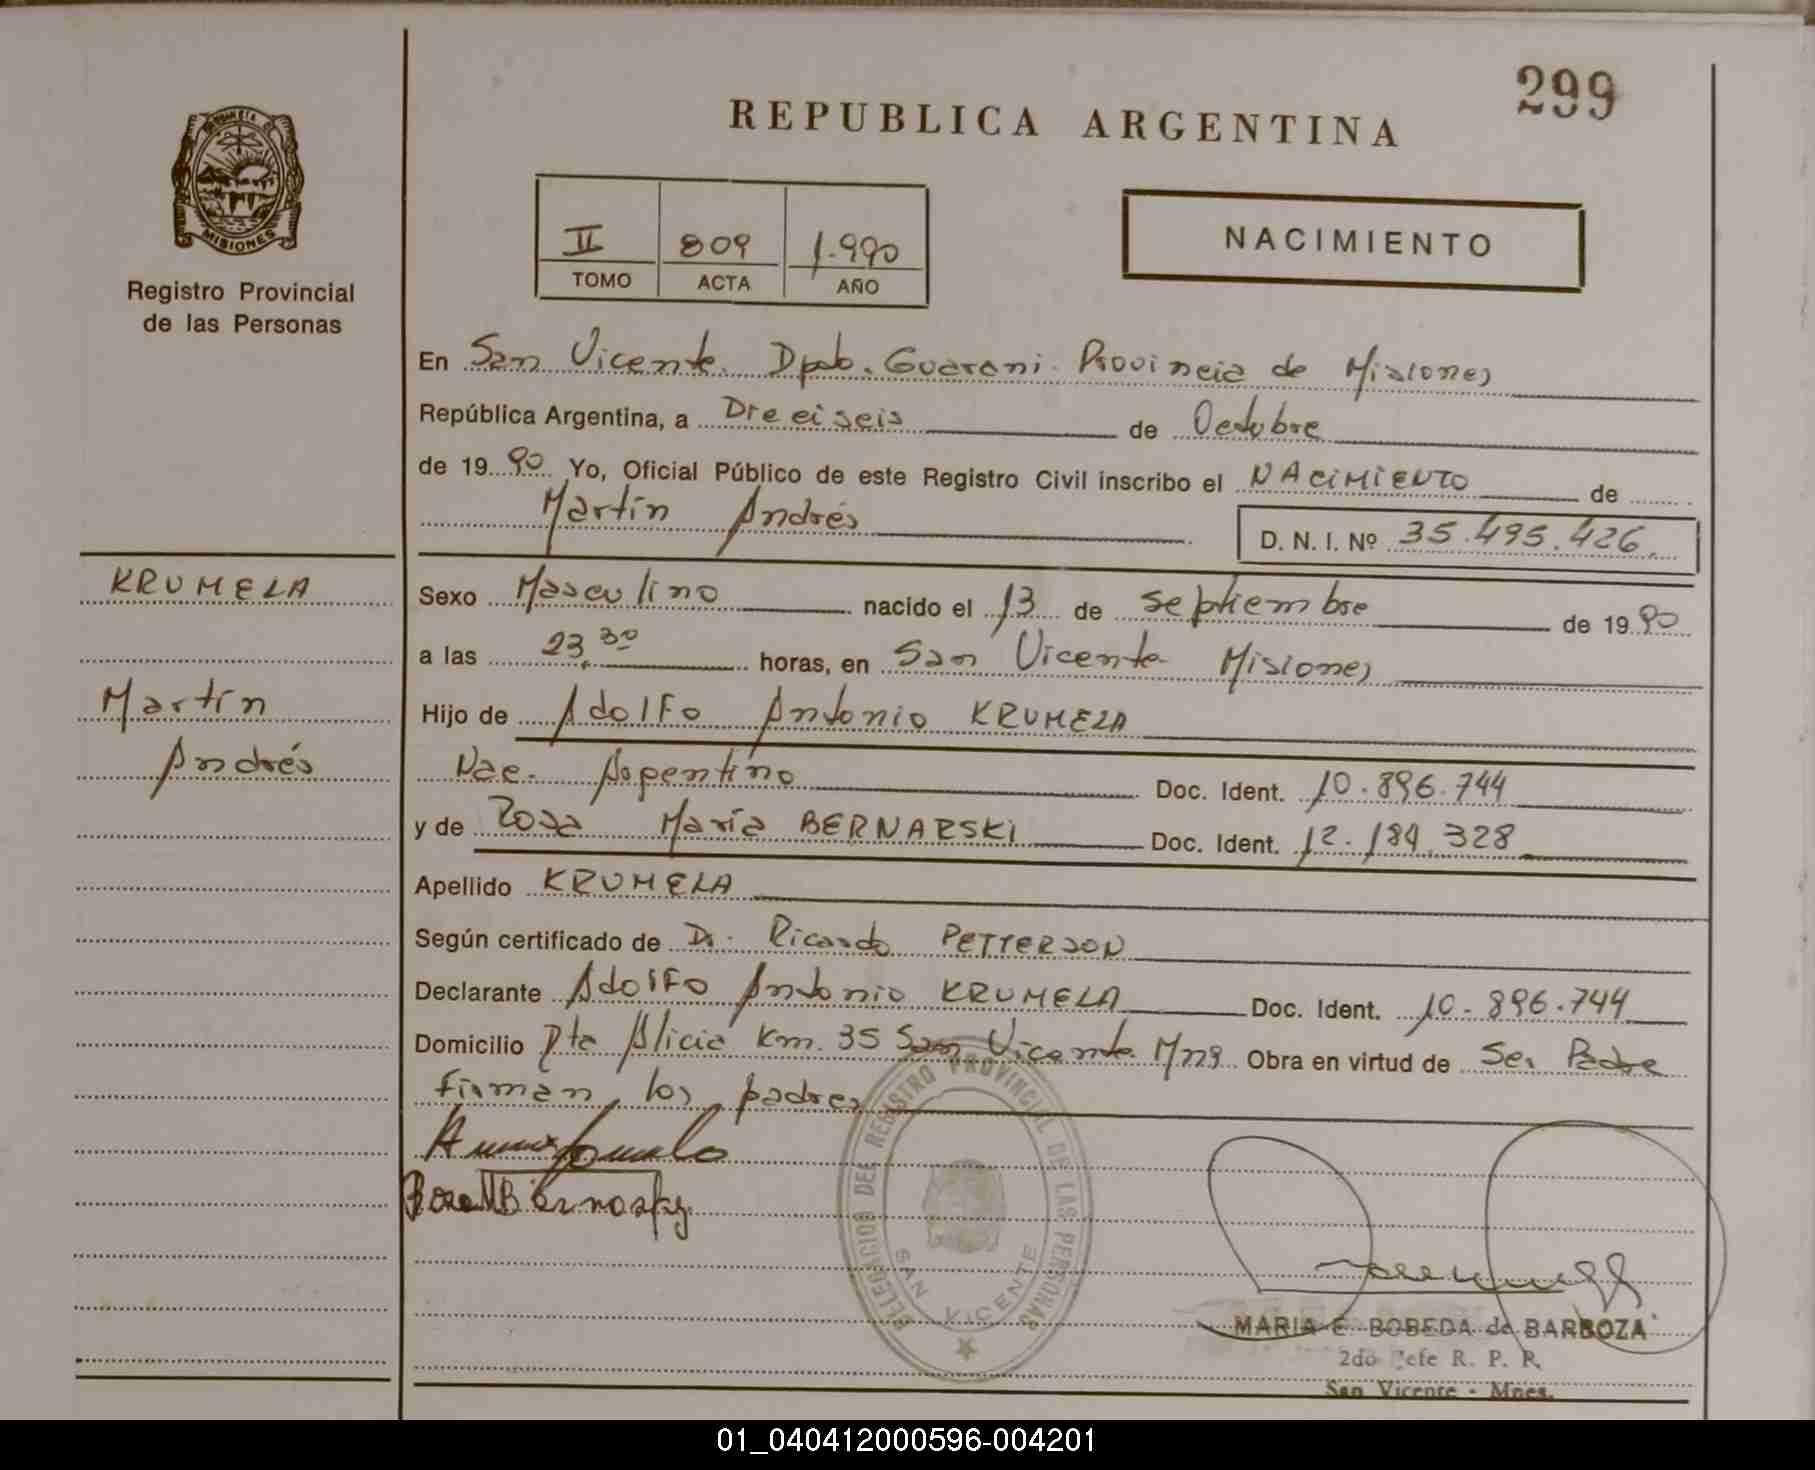 299
REPUBLICA ARGENTINA
PROVINCIA DE
MISIONES
Registro Provincial
de las Personas
II 809 1.990
TOMO ACTA AÑO
NACIMIENTO
En San Vicente Dpto. Guarani. Provincia de Misiones
República Argentina, a Dieciseis de Octubre
de 1990 Yo, Oficial Público de este Registro Civil inscribo el NACIMIENTO de
Martín Andrés
D. N. I. Nº 35.495.426
KRUMELA
Martín
Andrés
Sexo Masculino nacido el 13 de septiembre de 1990
a las 23,30 horas, en San Vicente Misiones
Hijo de Adolfo Antonio KRUMELA
Nac. Argentino Doc. Ident. 10.896.744
y de Rosa María BERNARSKI Doc. Ident. 12.184.328
Apellido KRUMELA
Según certificado de Dr. Ricardo PETTERSON
Declarante Adolfo Antonio KRUMELA Doc. Ident. 10.896.744
Domicilio Pto Alicia Km. 35 San Vicente Mns Obra en virtud de Ser Padre
Firman los padres
DELEGACION DEL REGISTRO PROVINCIAL DE LAS PERSONAS
SAN VICENTE
MARIA E. BOBEDA de BARBOZA
2do Jefe R. P. P.
San Vicente - Mnes.
01_040412000596-004201